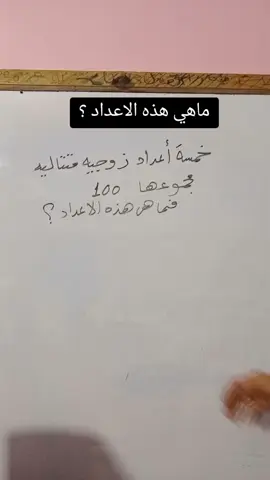 ماهي هذه الاعداد ؟
خمسة أعداد زوجيه متتاليه
مجموعها 100
فما هي هذه الاعداد ؟